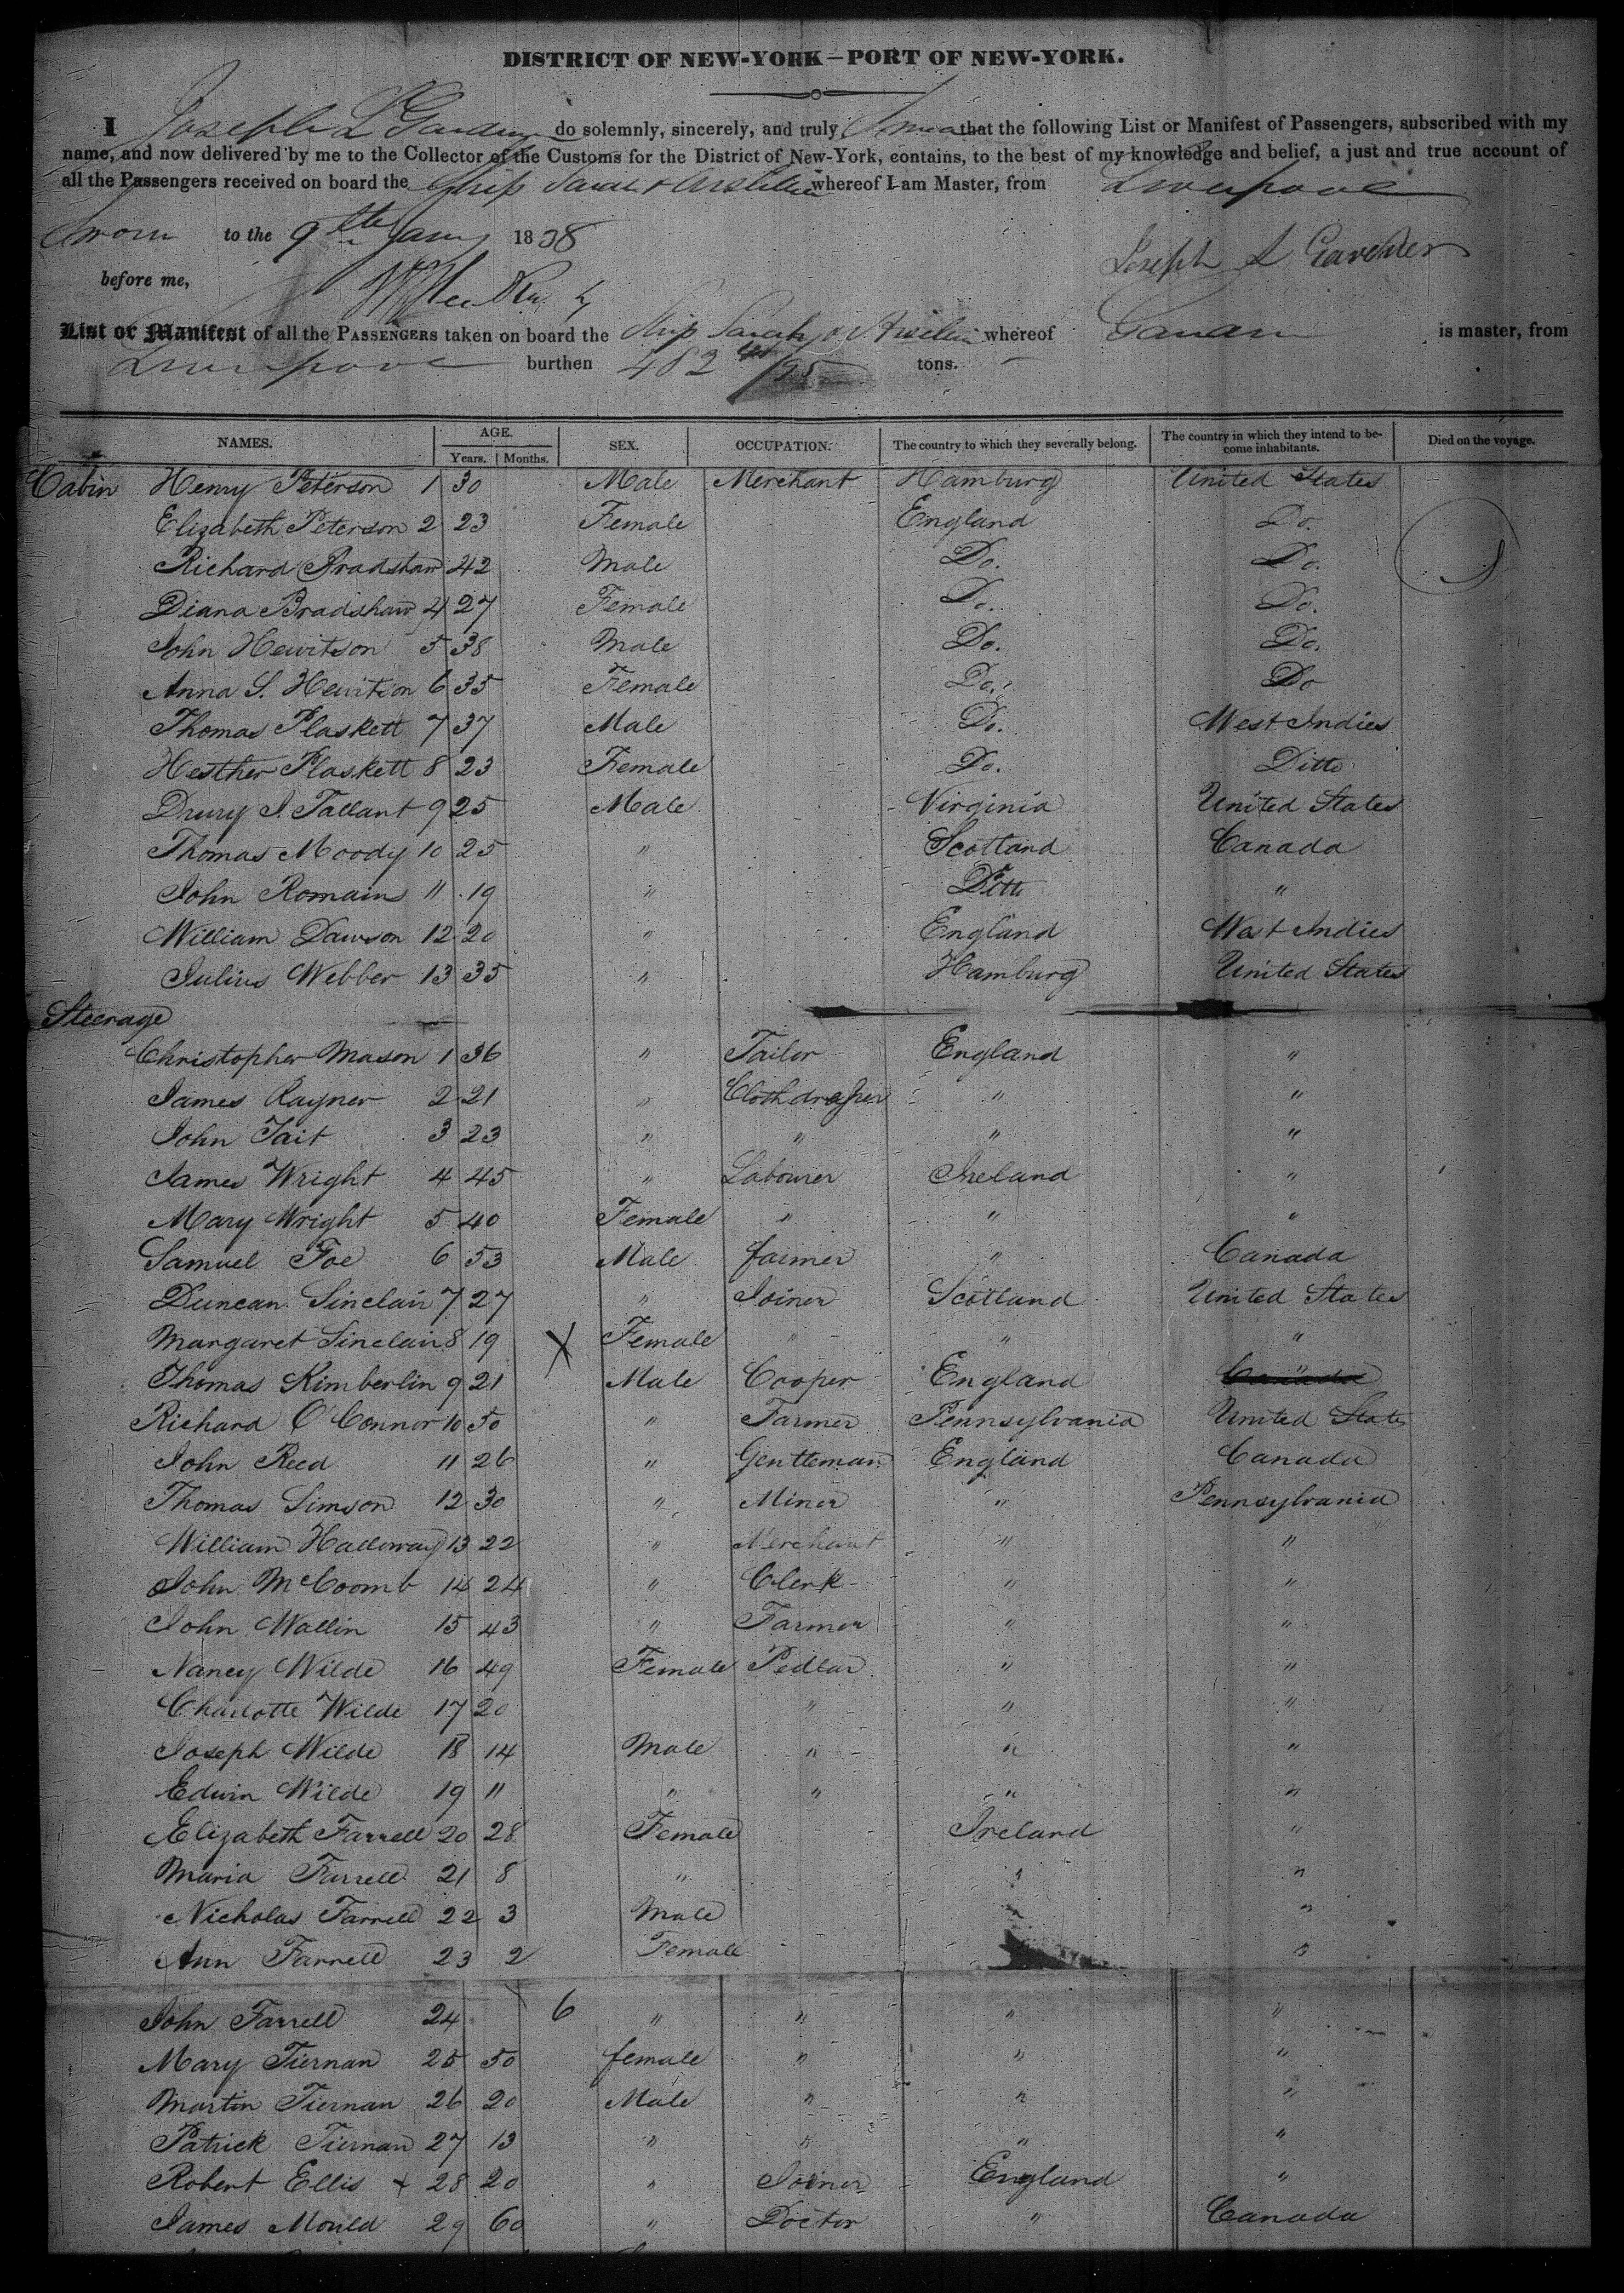 DISTRICT OF NEW-YORK—PORT OF NEW-YORK.
I Joseph L Gardner do solemnly, sincerely, and truly that the following List or Manifest of Passengers, subscribed with my
name, and now delivered by me to the Collector of the Customs for the District of New-York, contains, to the best of my knowledge and belief, a just and true account of
all the Passengers received on board the Ship Sarah & whereof I am Master, from Liverpool
Sworn to the 9th Jany 1838
Joseph L Gardner
before me,
List or Manifest of all the PASSENGERS taken on board the Ship Sarah & whereof is master, from
Liverpool burthen 482 /95 tons.
NAMES. AGE. SEX. OCCUPATION. The country to which they severally belong. The country in which they intend to be- Died on the voyage.
Years. Months. come inhabitants.
Cabin Henry Peterson 1 30 Male Merchant Hamburg United States
Elizabeth Peterson 2 23 Female England Do.
Richard Bradshaw 42 Male Do. Do.
Diana Bradshaw 4 27 Female Do. Do.
John Hewitson 5 38 Male Do. Do.
Anna S. Hewitson 6 35 Female Do. Do
Thomas Plaskett 7 37 Male Do. West Indies
Hesther Plaskett 8 23 Female Do. Ditto
Drury J. Tallant 9 25 Male Virginia United States
Thomas Moody 10 25 " Scotland Canada
John Romains 11 19 " Ditto "
William Dawson 12 20 " England West Indies
Julius Webber 13 35 " Hamburg United States
Steerage
Christopher Mason 1 36 " Tailor England "
James Rayner 2 21 " Cloth dresser " "
John Tait 3 23 " " " "
James Wright 4 45 " Labourer Ireland "
Mary Wright 5 40 Female " " "
Samuel Foe 6 53 Male farmer " Canada
Duncan Sinclair 7 27 " Joiner Scotland United States
Margaret Sinclair 8 19 X Female " " "
Thomas Kimberlin 9 21 Male Cooper England Canada
Richard O'Connor 10 50 " Farmer Pennsylvania United States
John Reed 11 26 " Gentleman England Canada
Thomas Simson 12 30 " Miner " Pennsylvania
William Halloway 13 22 " Merchant " "
John McCoomb 14 24 " Clerk " "
John Wallin 15 43 " Farmer " "
Nancy Wilde 16 49 Female Pedlar " "
Charlotte Wilde 17 20 " " "
Joseph Wilde 18 14 Male " " "
Edwin Wilde 19 11 " " " "
Elizabeth Farrell 20 28 Female Ireland "
Maria Farrell 21 8 " " "
Nicholas Farrell 22 3 Male " "
Ann Farrell 23 2 Female "
John Farrell 24 6 " " " "
Mary Tiernan 25 50 female " " "
Martin Tiernan 26 20 Male " " "
Patrick Tiernan 27 13 " " " "
Robert Ellis + 28 20 " Joiner England "
James Mould 29 60 " Doctor " Canada